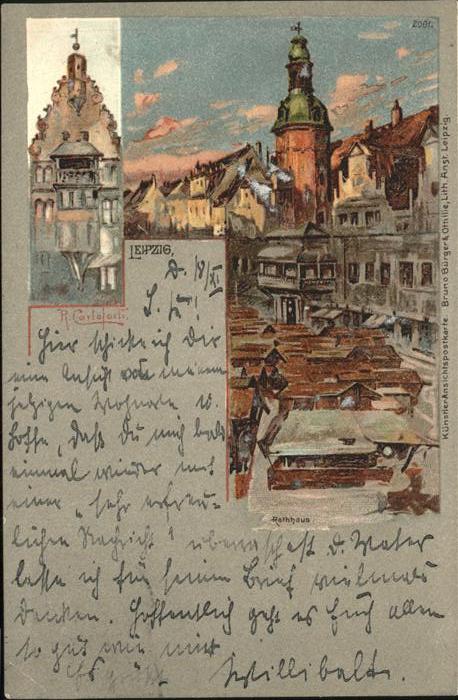 2001.
LEIPZIG,
D. 18/XI
R. Carloforti.
Hier schicke ich Dir
eine Ansicht von meinem
jetzigen Wohnorte.
hoffe, daß Du mich bald
einmal wieder mit
einer „sehr erfreu-
lichen Nachricht“ überraschest. D. Vater
lasse ich für seinen Brief vielmals
danken. Hoffentlich geht es Euch allen
so gut wie mir
Es grüßt Willibald.
Rathhaus
Künstler Ansichtspostkarte. Bruno Bürger & Ottillie, Lith. Anst. Leipzig.